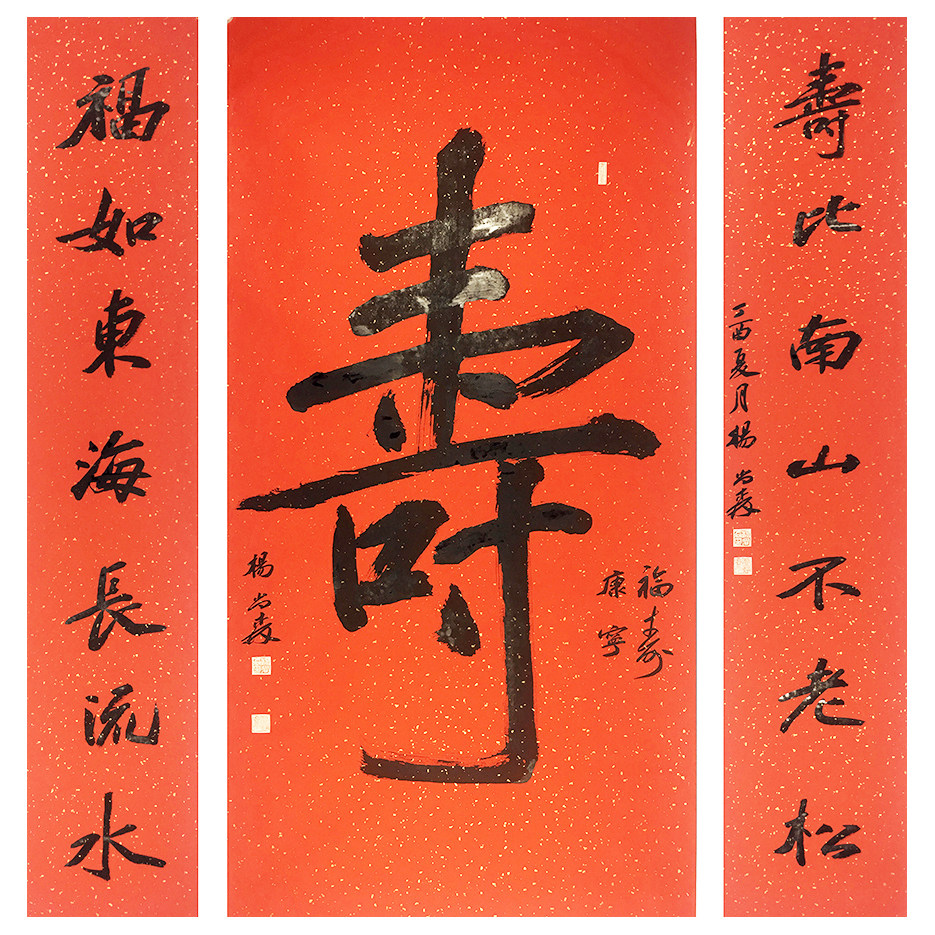 壽比南山不老松
丁酉夏月楊尚
福壽
康寧
壽
楊尚
福如東海長流水